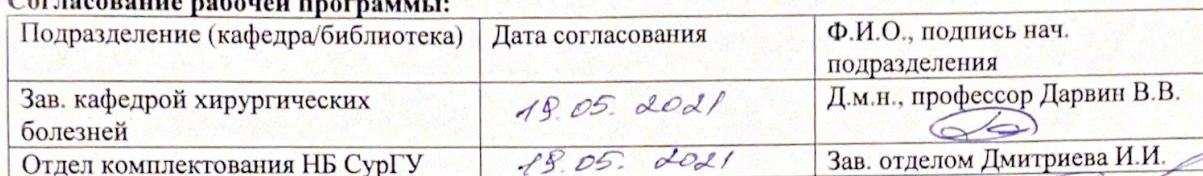 Согласование рабочей программы:
Подразделение (кафедра/библиотека) Дата согласования Ф.И.О., подпись нач.
подразделения
Зав. кафедрой хирургических
болезней
19.05. 2021
Д.м.н., профессор Дарвин В.В.
Отдел комплектования НБ СурГУ 19.05. 2021 Зав. отделом Дмитриева И.И.